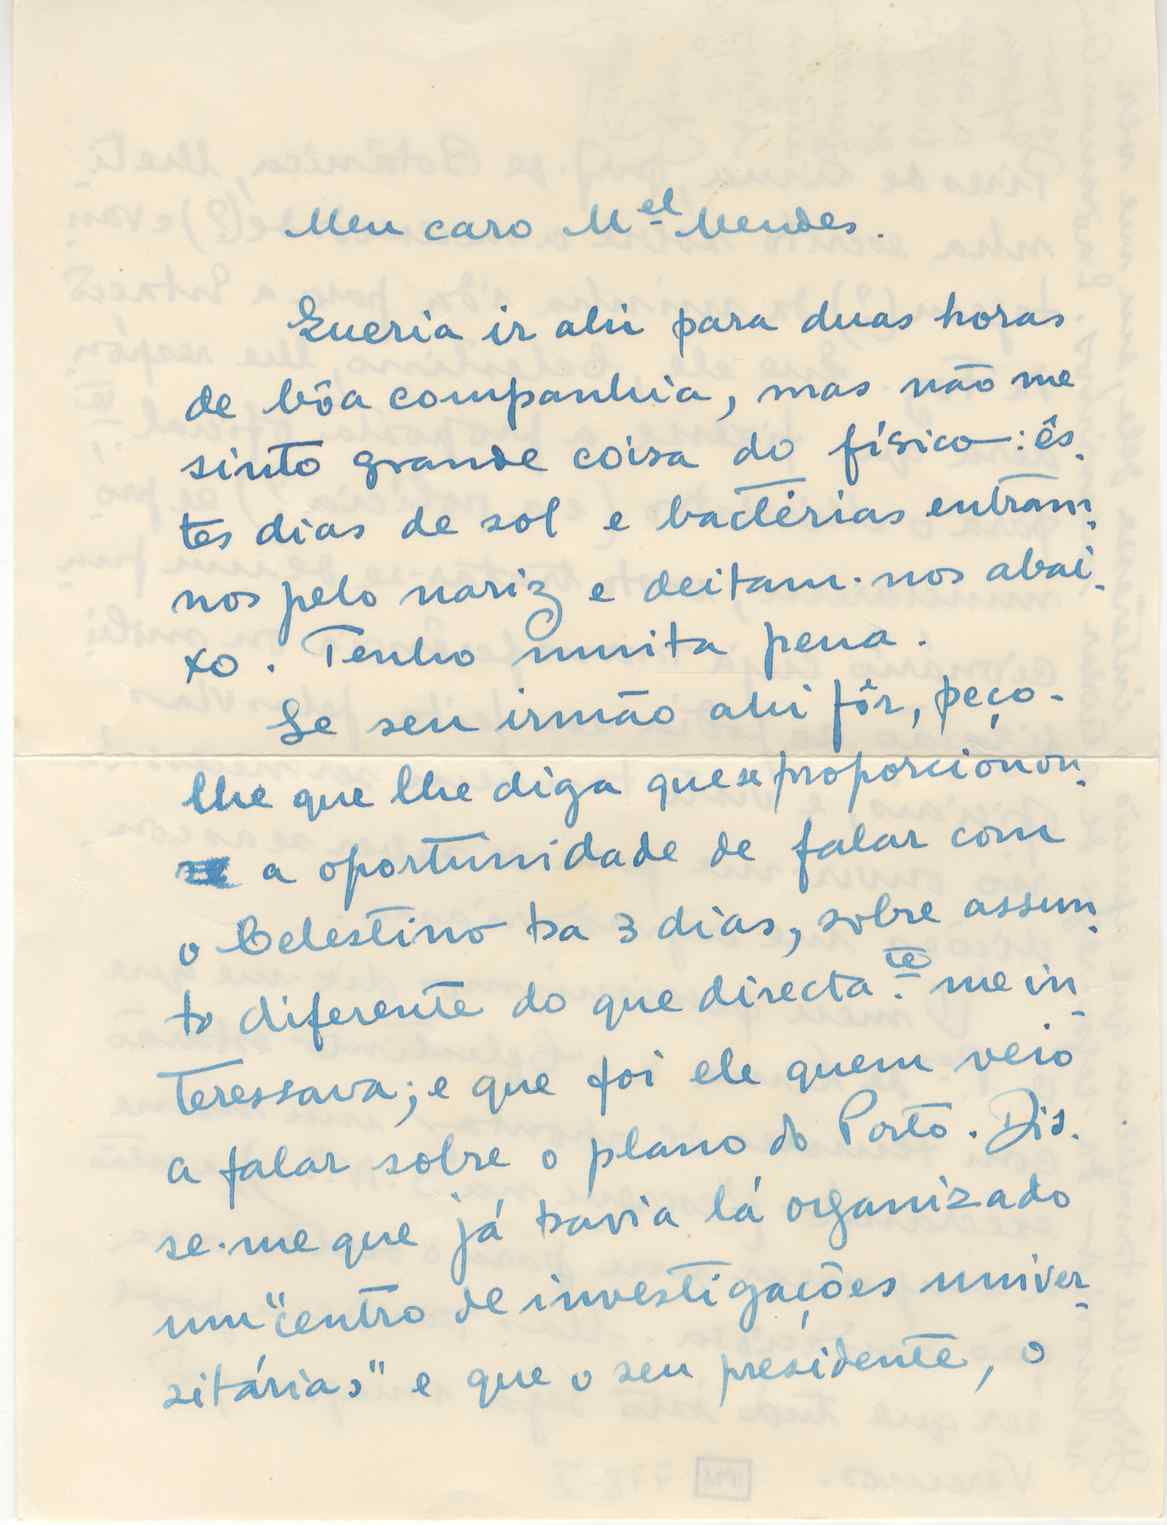 Meu caro M.el Mendes.
Queria ir ahi para duas horas
de bôa companhia, mas não me
sinto grande coisa do físico: ês-
tes dias de sol e bactérias entram-
nos pelo nariz e deitam-nos abai-
xo. Tenho muita pena.
Se seu irmão ahi fôr, peço-
lhe que lhe diga que se proporcionou
a oportunidade de falar com
o Celestino ha 3 dias, sobre assun-
to diferente do que directa.te me in-
teressava; e que foi ele quem veio
a falar sobre o plano do Porto. Dis-
se-me que já havia lá organizado
um "centro de investigações univer-
sitárias" e que o seu presidente, o